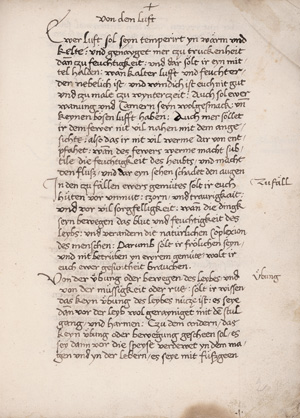 von dem luft
Ewer luft sol seyn temperirt yn warm und
kelte: und genayget mer tzu truckenheit
dan tzu feuchtigkeit: und dar solt ir eyn mit
tel halden: wan kalter luft und feuchter
der nebelich ist und windich ist euch nit gut
und tzu male tzu wynterzeit: Auch sol ewer
wanung und Camern seyn wolgesmack: un
keynen bosen lufft haben: Auch mer sollet
ir dem fewer nit vil nahen mit dem ange
sichte: also das ir mit vil werme dar von ent
pfahet: wan des fewers werme macht sub
tile die feuchtigkeit des heubts: und macht
den fluss: und dar eyn sehen schadet den augen
In den zu fällen ewers gemutes solt ir euch
hüten vor unmut: zorn: und traurigkait:
und vor vil sorgfelligkait: wan die dingk
sern bewegen das blut und feuchtigkeit des
leybs: und verandern dit naturlichen
des menschen: Darumb solt ir frölichen seyn:
und mit betrüben yn errem gemüte: wolt ir
euch ewer gesuntheit brauchen.
Von der übung oder bewegen des leybs und
von der müssigkeit oder rue: solt ir wissen
das keyn übung des leybes nütze ist: es seye
dan vor der leyb wol gerayniget mit dē stul
gang: und harmen: Tzu dem andern: das
keyn übung oder bewegung gescheen sol: es
sey dann vor die speyse verdewet yn den ma
gen: und yn der lebern: es seye mit füssgeen
Zufäll
Übung